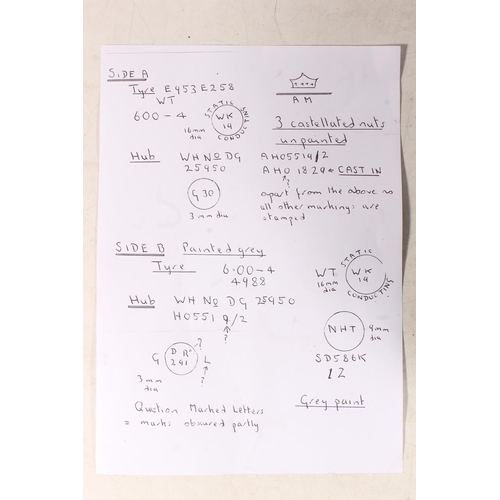 SIDE A
Tyre E453E258
WT
600-4
STATIC CONDUCTING
WK
14
16mm
dia
AM
3 castellated nuts
unpainted
Hub WH No DG
25950
G30
3mm dia
AH0551412
AHO 1829 ← CAST IN
?
apart from the above no
all other markings are
stamped
SIDE B Painted grey
Tyre 6.00-4
4988
WT
16mm
dia
STATIC CONDUCTING
WK
14
Hub WH No DG 25950
H0551 9/2
?
G
D R
291
L
?
?
3mm
dia
NHT
9mm
dia
SD586K
12
Question Marked Letters
= marks obsured partly
Grey paint